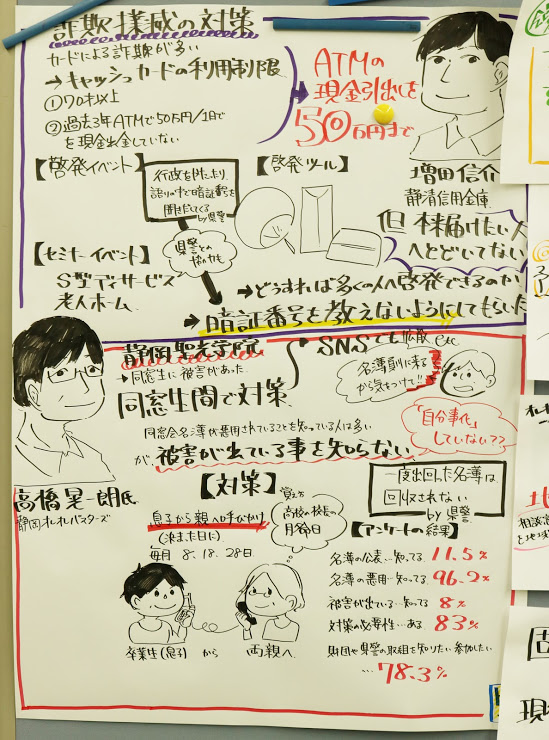 詐欺撲滅の対策
カードによる詐欺が多い
→キャッシュカードの利用制限
①70才以上
②過去3年ATMで50万円/1日で
を現金出金していない
ATMの
現金引出しを
50万円まで
増田信介
静清信用金庫
【啓発イベント】
行政をかたり
話の中で暗証番号を
聞きだしてくる
by県警
【啓発ツール】
但 本来届けたい人
へとどいてない
【セミナーイベント】
S型デイサービス
老人ホーム
県警との
協力も
→どうすれば多くの人へ啓発できるのか
→暗証番号を教えないようにしてもらいた
静岡聖光学院
→同窓生に被害があった
同窓生間で対策
→SNSでも拡散 etc
名簿順に来る
から気をつけて!!
同窓会名簿が悪用されていることを知っている人は多い
が、被害が出ている事を知らない
「自分事化」
していない??
高橋晃一朗氏
静岡オレオレバスターズ
【対策】
息子から親へ呼びかけ
(決まった日に)
毎月 8.18.28日
覚え方
高校の校長の
月命日
一度出回った名簿は
回収されない
by 県警
【アンケートの結果】
名簿の公表…知ってる 11.5%
名簿の悪用…知ってる 96.2%
被害が出ている…知ってる 8%
対策の必要性…ある 83%
財団や県警の取組を知りたい 参加したい
…78.3%
卒業生(息子) から 両親へ